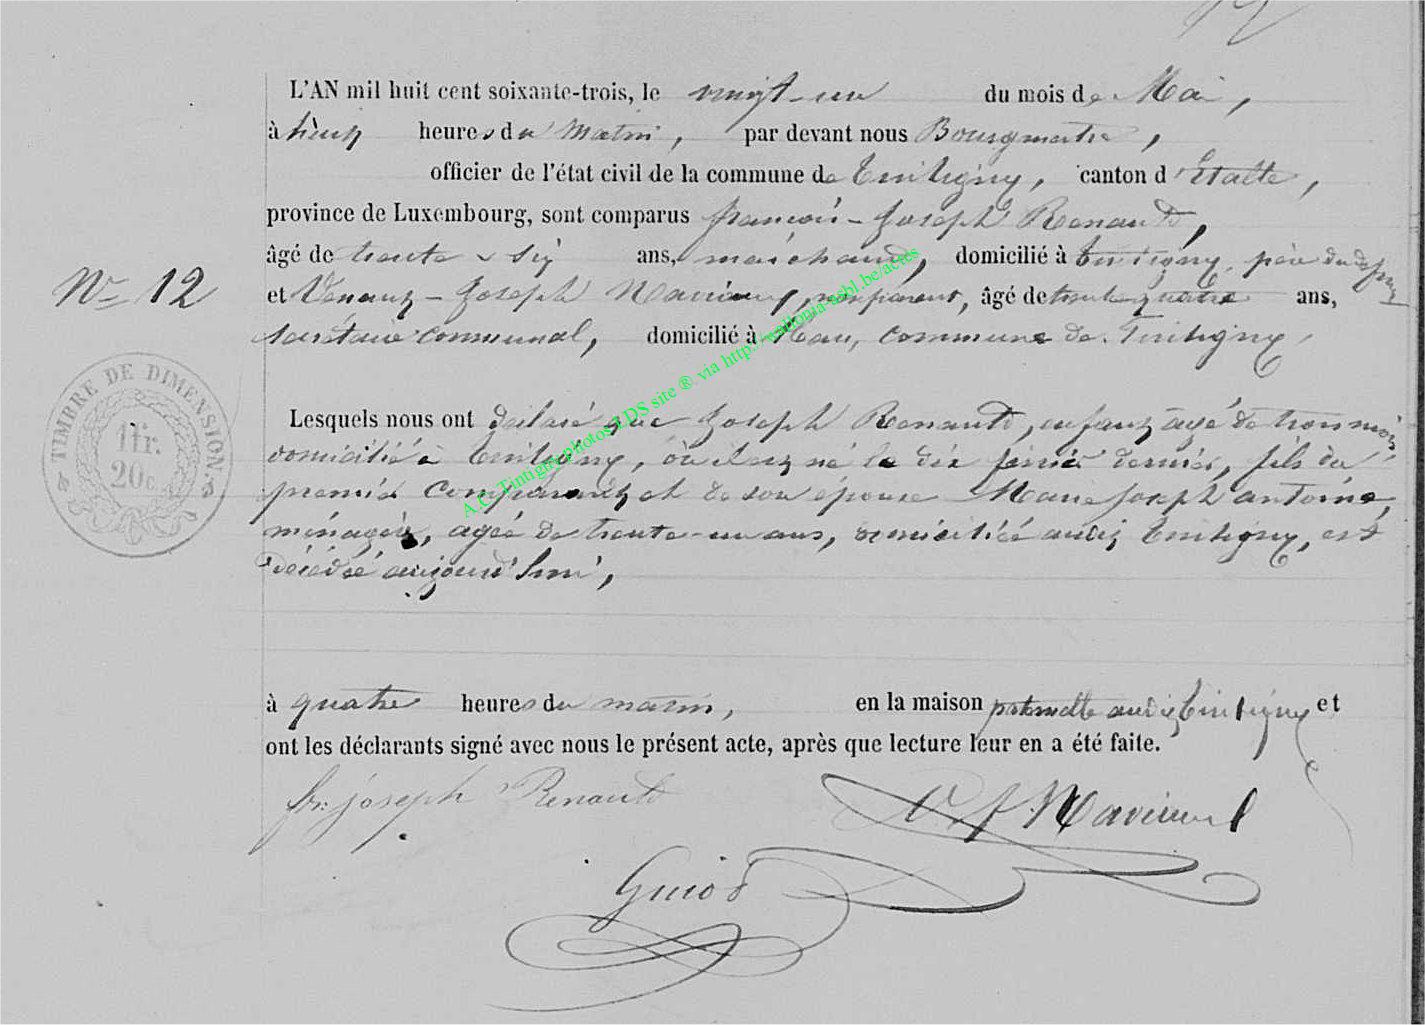 L'AN mil huit cent soixante-trois, le vingt-un du mois de Mai,
à heures du Matin, par devant nous Bourgmestre,
officier de l'état civil de la commune de Tintigny, canton d'Etalle,
province de Luxembourg, sont comparus françois-Joseph Renauld,
âgé de trente-six ans, maréchand, domicilié à Tintigny, père du défunt
N° 12
et Joseph, non parent, âgé de trente quatre ans,
secrétaire communal, domicilié à Han, commune de Tintigny,
TIMBRE DE DIMENSION.
1 fr.
20 c.
Lesquels nous ont déclaré que Joseph Renauld, enfant agé de trois mois,
domicilié à Tintigny, où il est né le dix dernier, fils du
premier comparant et de son épouse Marie Joseph antoine,
ménagère, agée de trente-un ans, domiciliée audit Tintigny, est
décédé aujourd'hui,
à quatre heures du matin, en la maison paternelle audit Tintigny et
ont les déclarants signé avec nous le présent acte, après que lecture leur en a été faite.
fr: joseph Renauld
Guiod
A.C. Tintigny photos LDS site ® via http://wallonia-asbl.be/actes